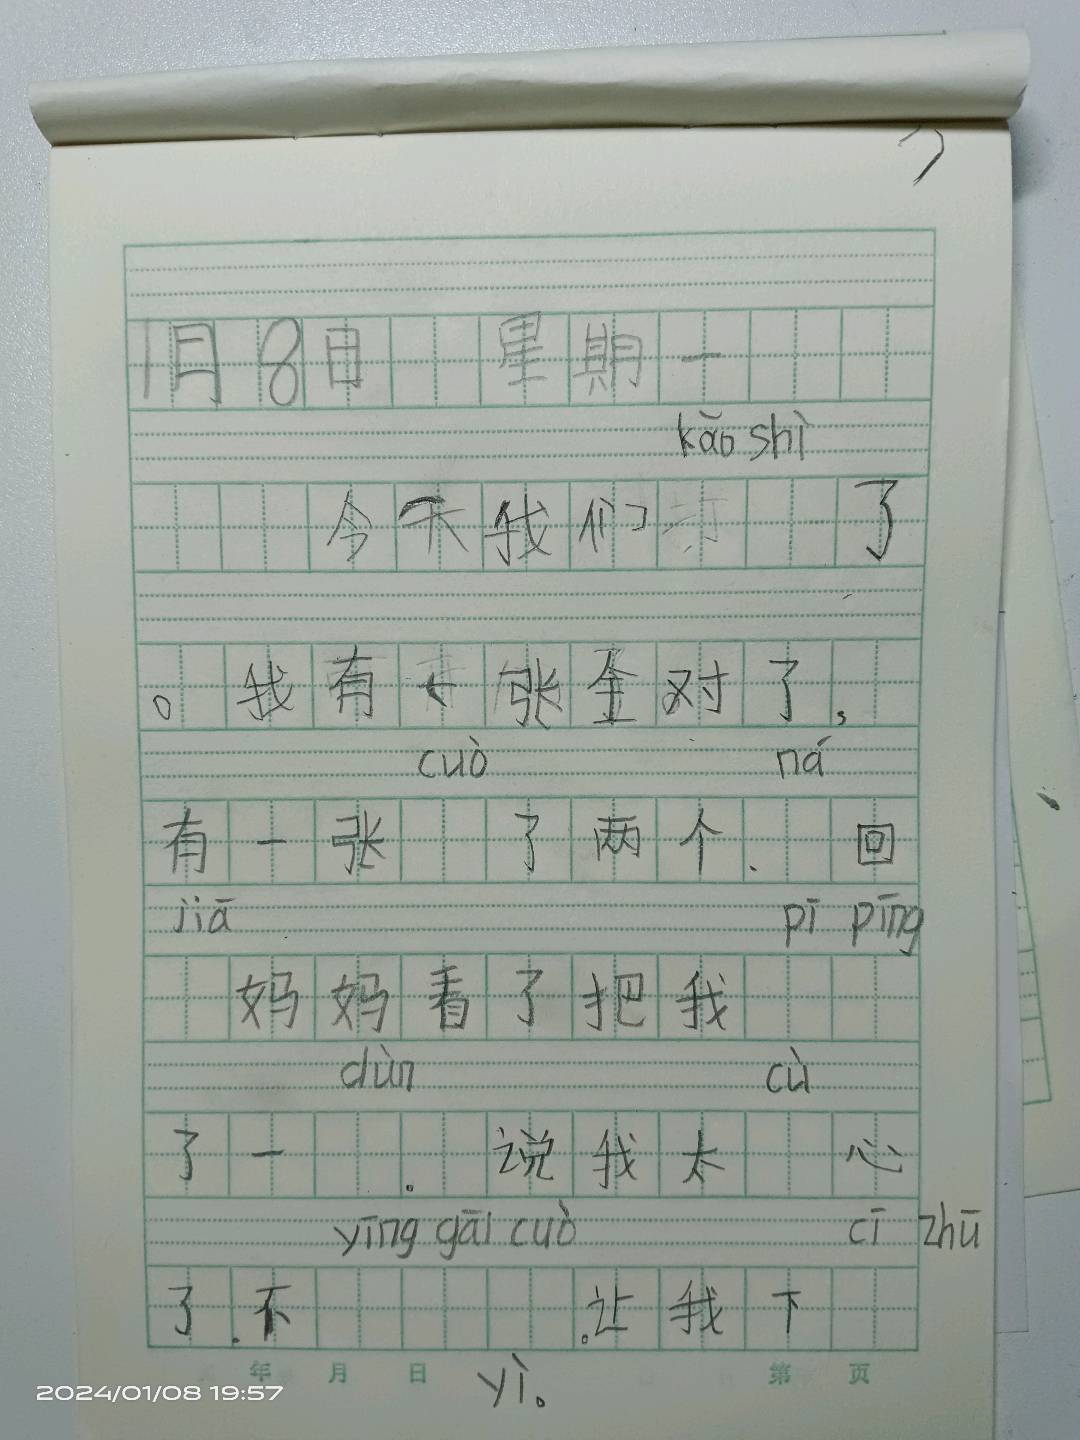 1月8日 星期一
kǎo shì
今天我们 了
。我有 张全对了，
cuò ná
有一张 了两个. 回
jiā pī pīng
妈妈看了把我
dùn cù
了一 . 说我太 心
yīng gāi cuò cī zhū
了.不 .让我下
年 月 日 第 页
yì。
2024/01/08 19:57